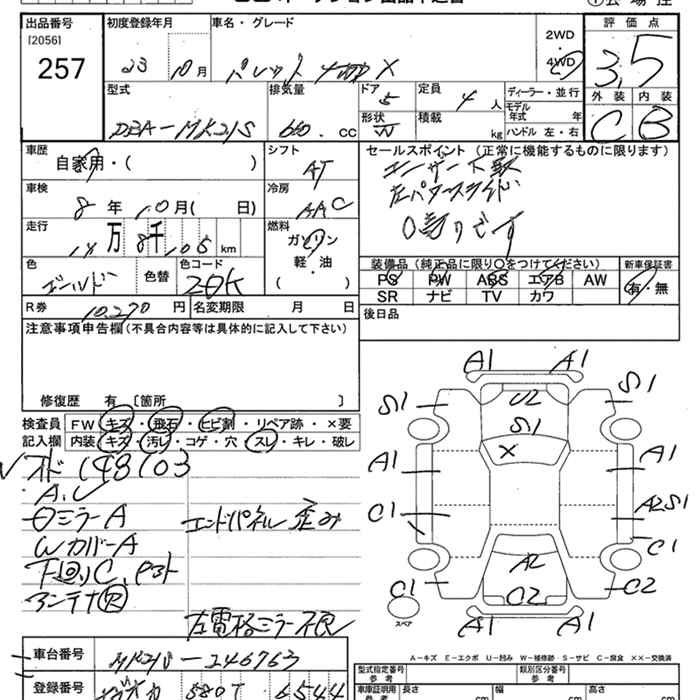 出品番号 初度登録年月 車名・グレード 評価点
[2056]
257
23 10月 パレット 4WD X
2WD
4WD
3.5
外装 内装
C B
型式 排気量 ドア 定員 ディーラー・並行
DBA-MK21S 660 . cc 5 4人
モデル年式 年
形状 積載 kg ハンドル 左・右
車歴 シフト セールスポイント(正常に機能するものに限ります)
自家用・( ) AT
車検 冷房
8年 10月( 日) AAC
左パワースライド
走行 燃料
14万8千105km ガソリン
軽・油
( )
色 色替 色コード
ゴールド Z0K
装備品(純正品に限り○をつけてください) 新車保証書
PS PW ABS エアB AW 有・無
SR ナビ TV カワ
R券 10,270円 名変期限 月 日
後日品
注意事項申告欄(不具合内容等は具体的に記入して下さい)
修復歴 有〔箇所 〕
検査員記入欄 FW キズ・飛石・ヒビ割・リペア跡・×要
内装 キズ・汚レ・コゲ・穴・スレ・キレ・破レ
オド148103
ミラーA エンドパネル歪み
WカバーA
下廻りC
アンテナ欠
左電格ミラー不良
A1 A1
S1 U2 S1
S1
×
A1 A1
A2S1
C1 C1
A2
C1 C2 C2
スペア
A1 A1
A-キズ E-エクボ U-凹み W-補修跡 S-サビ C-腐食 ××-交換済
車台番号 MK21S-246763
型式指定番号 類別区分番号
登録番号 580 6544
車庫証明用参考 長さ cm 幅 cm 高さ cm